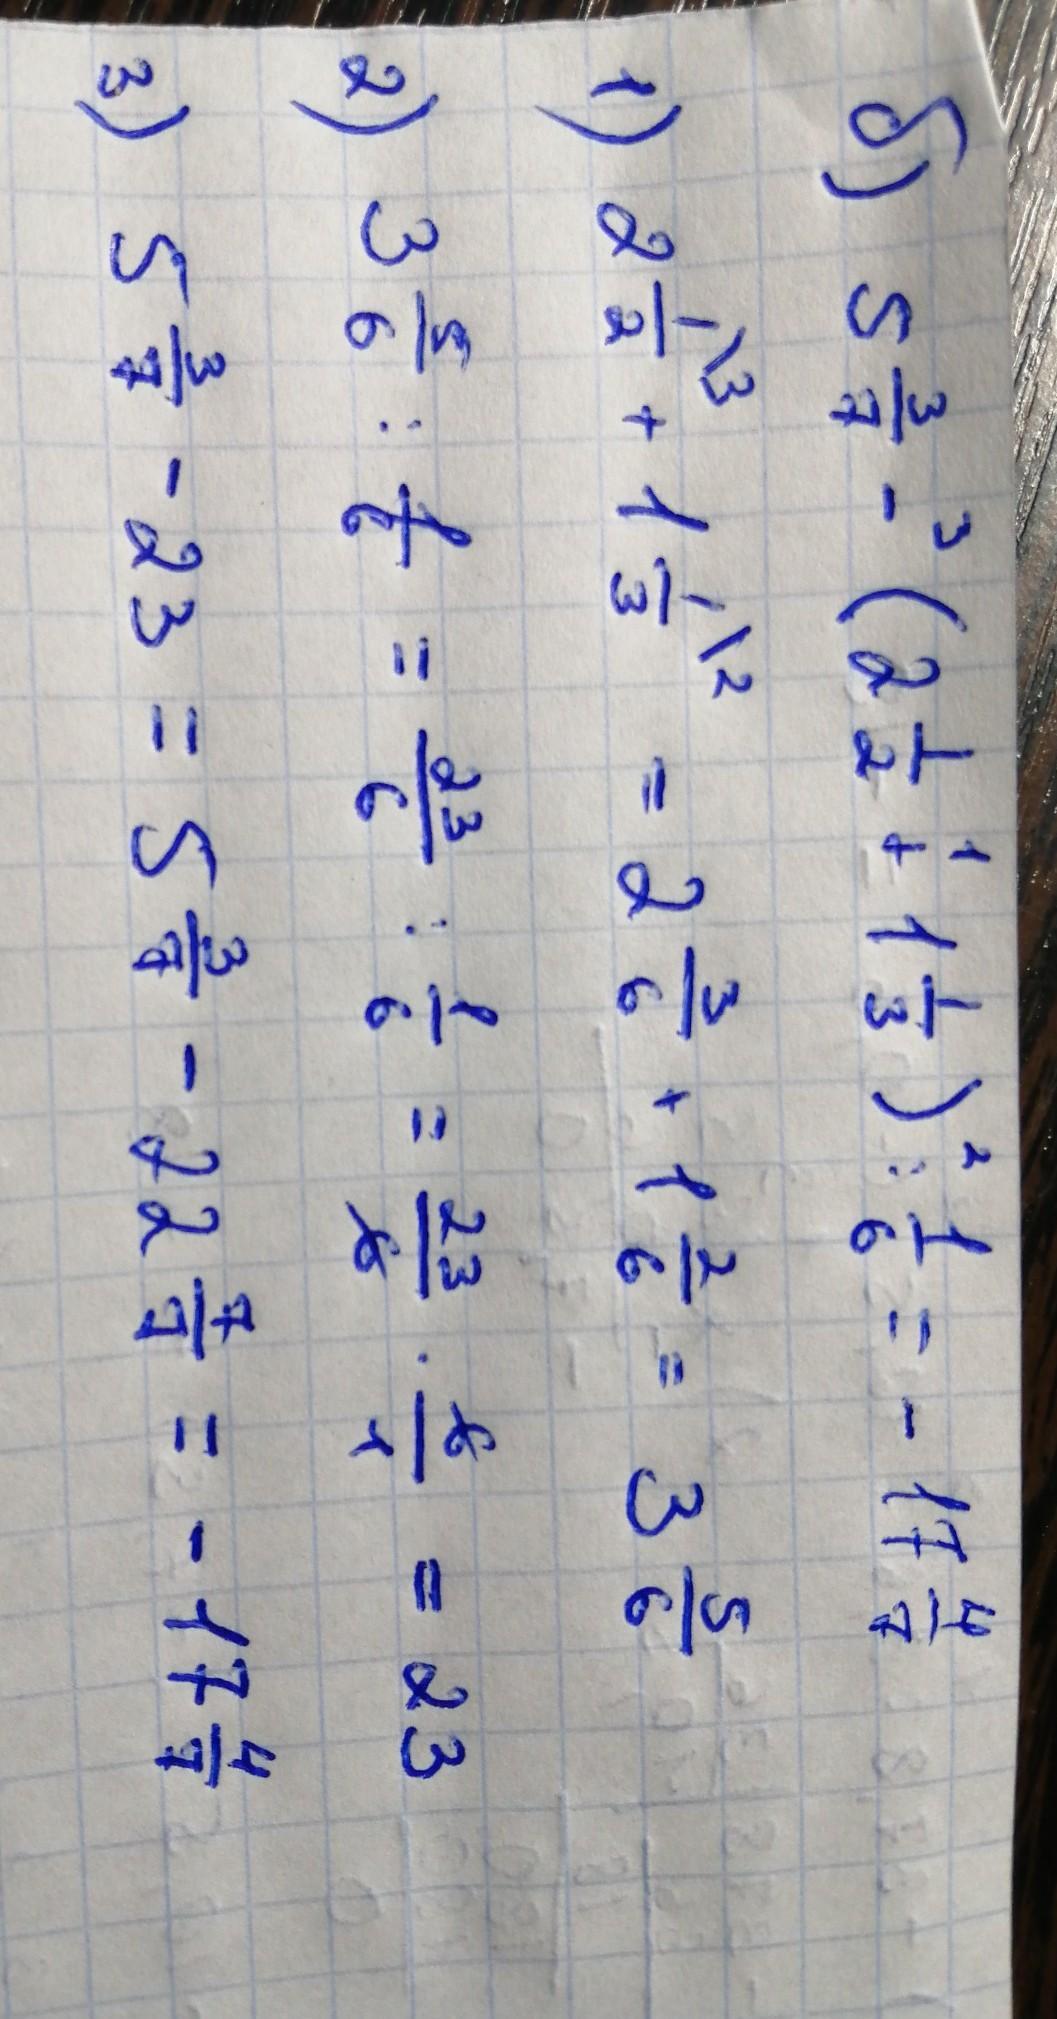 б) 5 3/7 - ³ (2 1/2 +¹ 1 1/3) ² : 1/6 = - 17 4/7
1) 2 1\3/2 + 1 1\2/3 = 2 3/6 + 1 2/6 = 3 5/6
2) 3 5/6 : 1/6 = 23/6 : 1/6 = 23/6 · 6/1 = 23
3) 5 3/7 - 23 = 5 3/7 - 22 7/7 = - 17 4/7